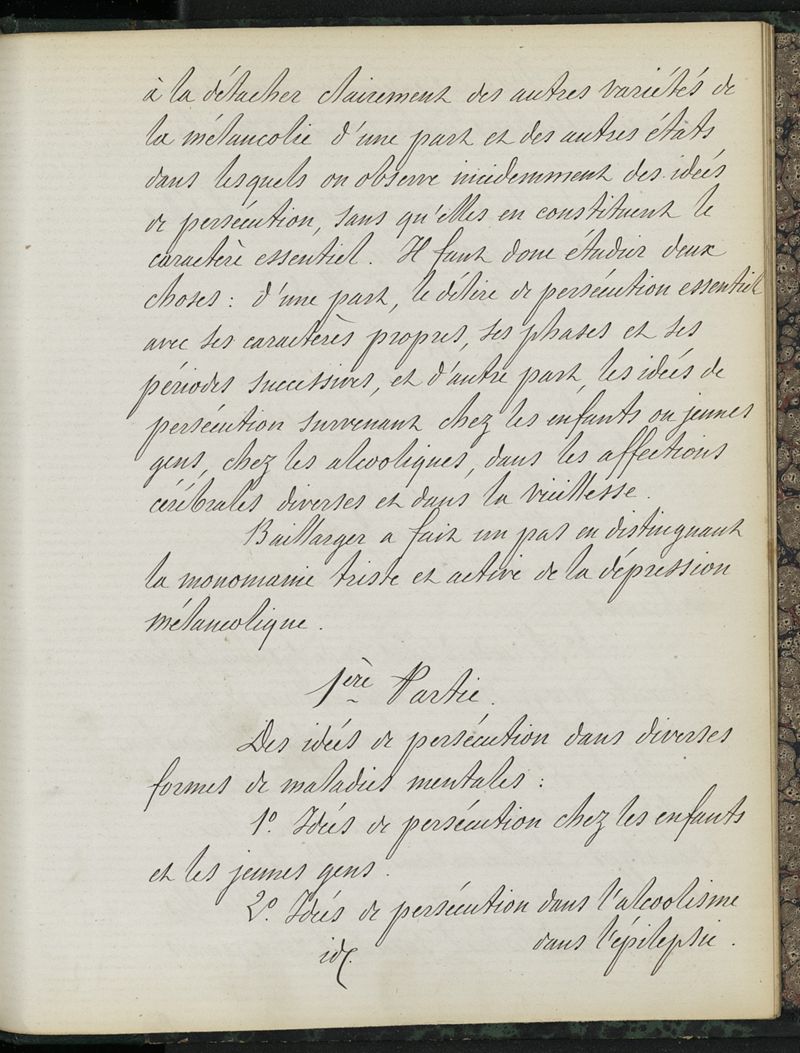 à la détacher clairement des autres variétés de
la mélancolie d'une part et des autres états
dans lesquels on observe incidemment des idées
de persécution, sans qu'elles en constituent le
caractère essentiel. Il faut donc étudier deux
choses : d'une part, le délire de persécution essentiel
avec ses caractères propres, ses phases et ses
périodes successives, et d'autre part, les idées de
persécution survenant chez les enfants ou jeunes
gens, chez les alcooliques, dans les affections
cérébrales diverses et dans la vieillesse.
Baillarger a fait un pas en distinguant
la monomanie triste et active de la dépression
mélancolique.
1ère Partie.
Des idées de persécution dans diverses
formes de maladies mentales :
1º. Idées de persécution chez les enfants
et les jeunes gens.
2º. Idées de persécution dans l'alcoolisme
id. dans l'épilepsie.